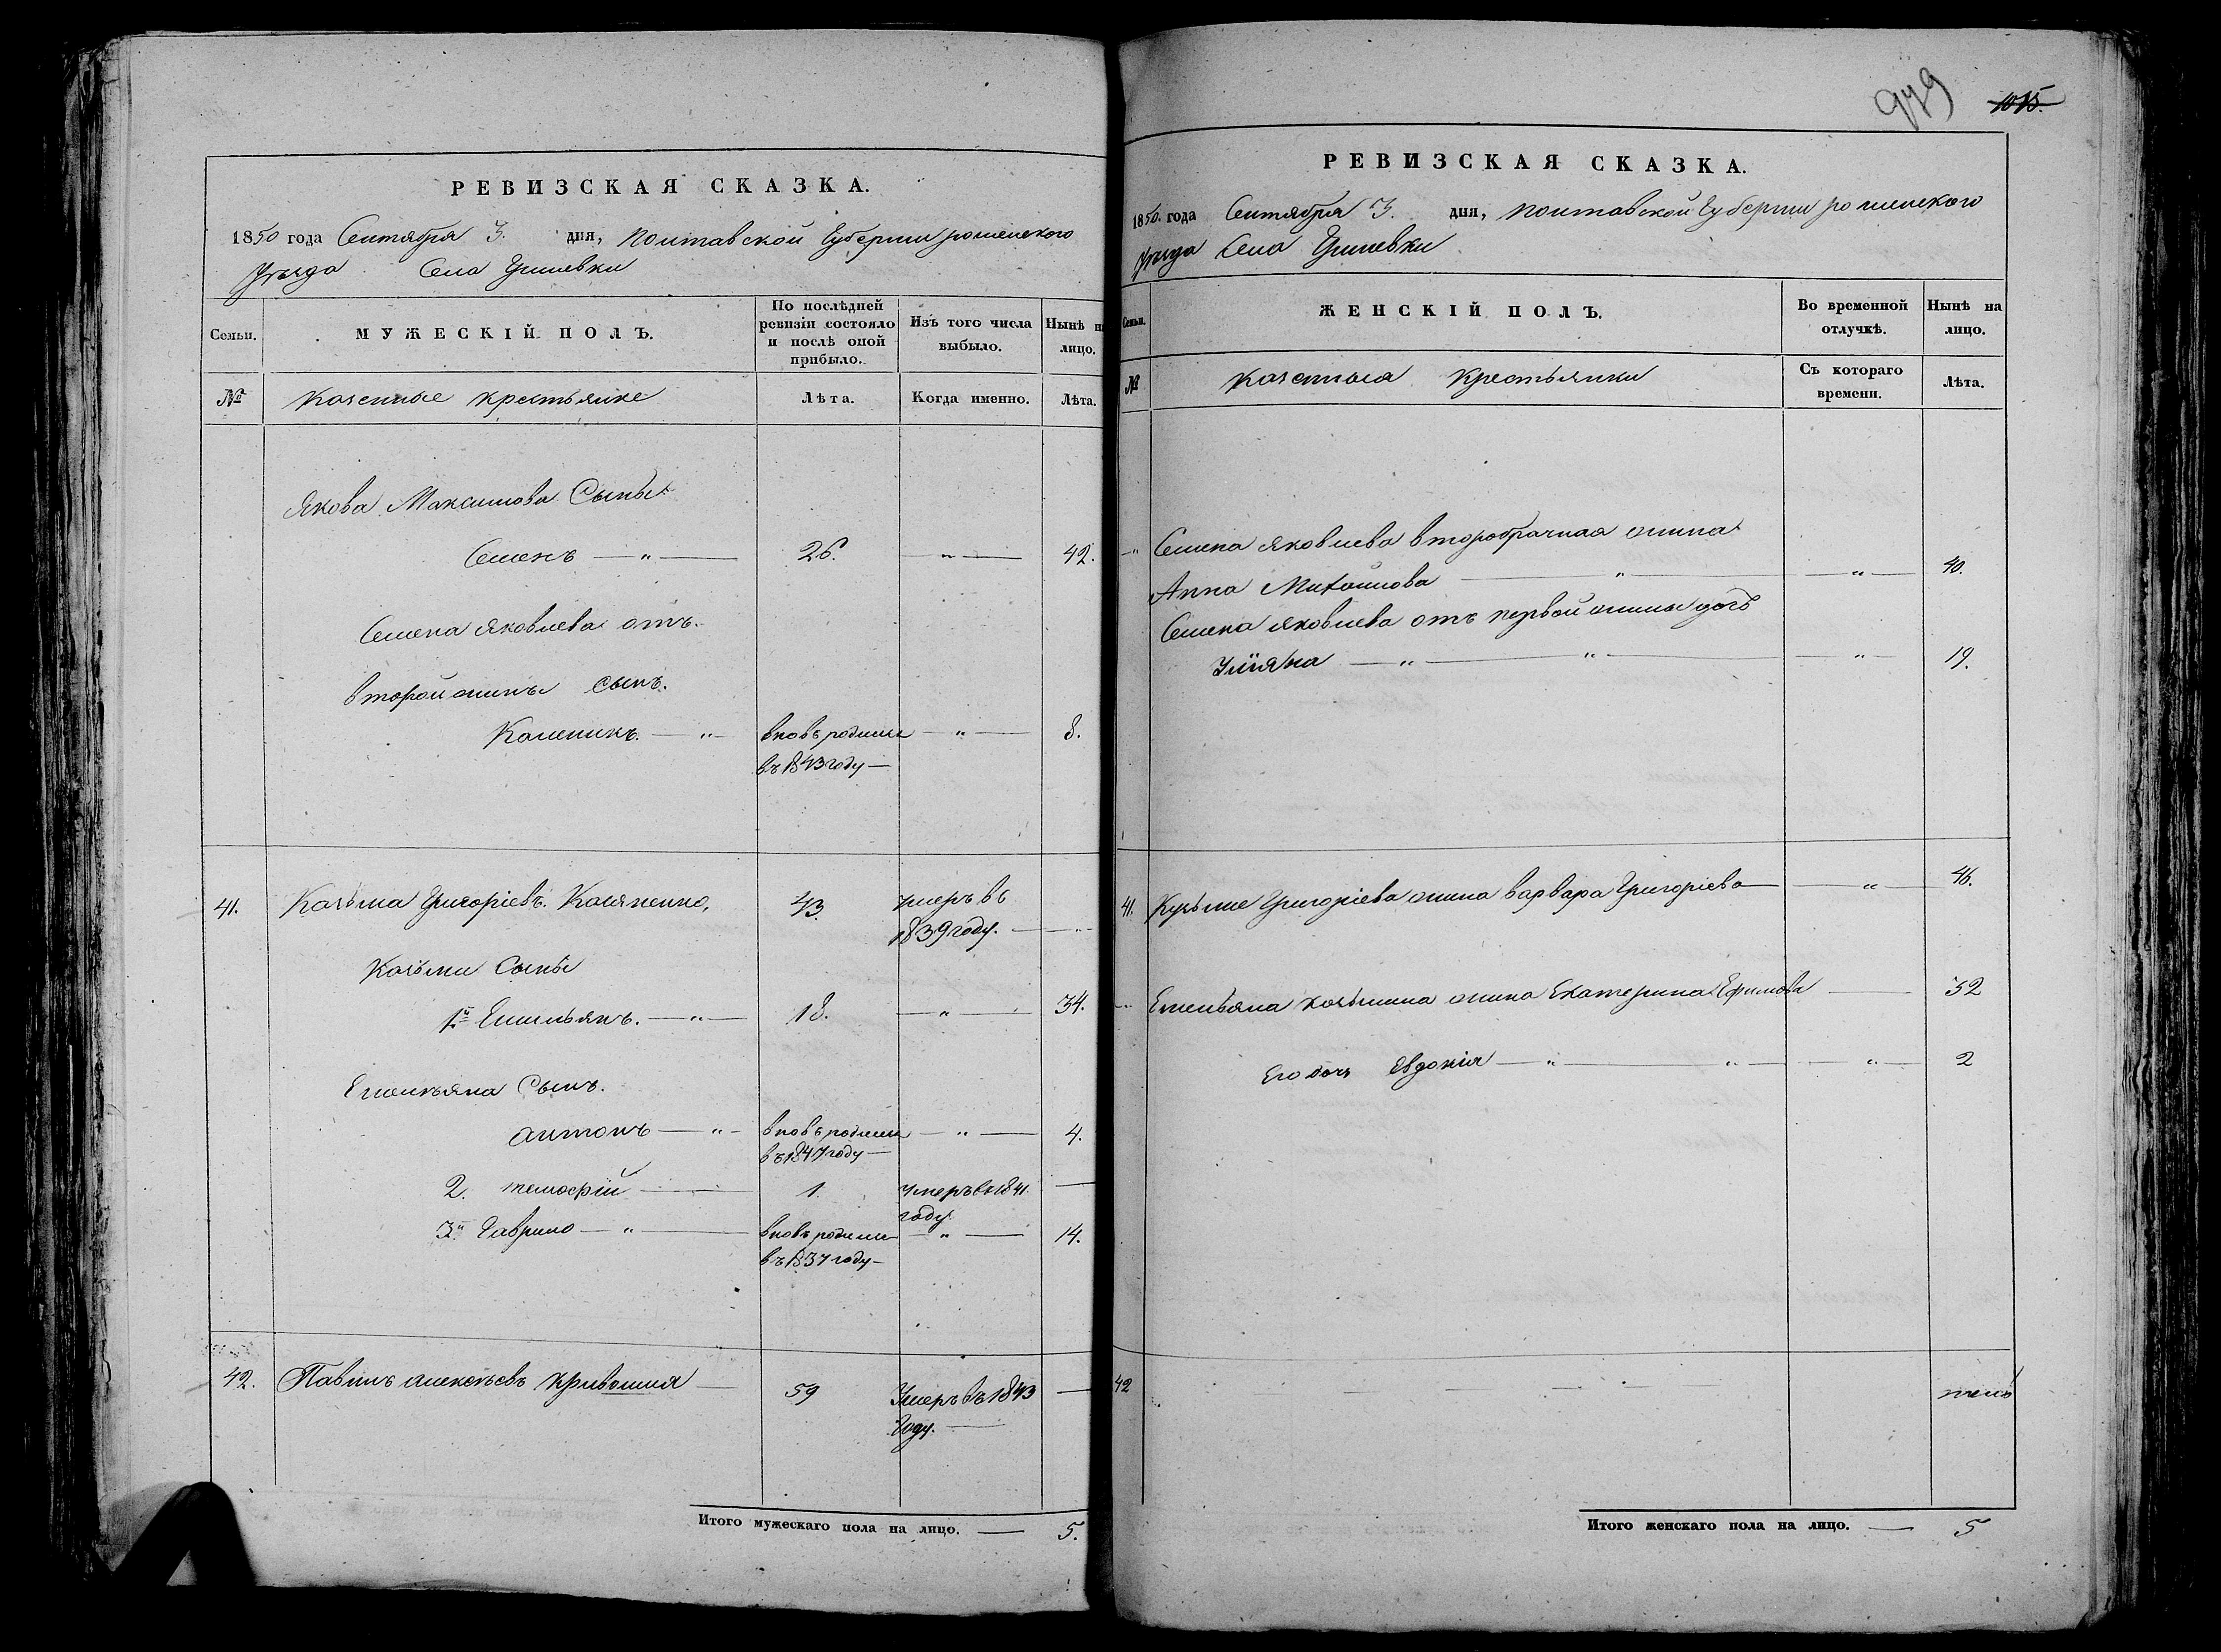 РЕВИЗСКАЯ СКАЗКА.
1850 года Сентября 3. дня, Полтавской Губернии роменского
Уезда Села Гришевки
Семьи.
МУЖЕСКІЙ ПОЛЪ.
По послѣдней ревизіи состояло и послѣ оной прибыло.
Изъ того числа выбыло.
Нынѣ на лицо.
№
Казенные крестьяне
Лѣта.
Когда именно.
Лѣта.
Якова Максимова Сыны
Семенъ — „ — 26. — „ — 42.
Семена Яковлева отъ
второй жены сынъ.
Каленикъ. — „ — вновь родился — „ — 8.
въ 1843 году —
41. Козьма Григоріевъ Коляненко, 43. умеръ въ
1839 году. — „
Козьмы Сыны
1й Емельянъ. — „ — 18. — „ — 34.
Емельяна Сынъ.
Антонъ — „ — вновь родился — „ — 4.
въ 1847 году —
2. Тимофій — 1. умеръ въ 1841 —
году
3й Гаврило — „ — вновь родился — „ — 14.
въ 1837 году —
42. Павелъ Алексеевъ Кривошия — 59 Умеръ въ 1843 —
Году. —
Итого мужескаго пола на лицо. — 5.
979 1015.
РЕВИЗСКАЯ СКАЗКА.
1850. года Сентября 3. дня, Полтавской Губернии роменского
Уезда Села Гришевки
Семьи.
ЖЕНСКІЙ ПОЛЪ.
Во временной отлучкѣ.
Нынѣ на лицо.
№
Казенныя Крестьянки
Съ котораго времени.
Лѣта.
„ Семена Яковлева второбрачная жена
Анна Михайлова — „ — „ — 40.
Семена Яковлева отъ первой жены дочь
Уліяна — „ — „ — „ — 19.
41. Кузьмы Григоріева жена Варвара Григоріева — „ — 46.
„ Емельяна Козьмина жена Екатерина Ефимова — 32
Его дочь Евдокія — „ — „ — „ — 2
42 — — —
Итого женскаго пола на лицо. — 5